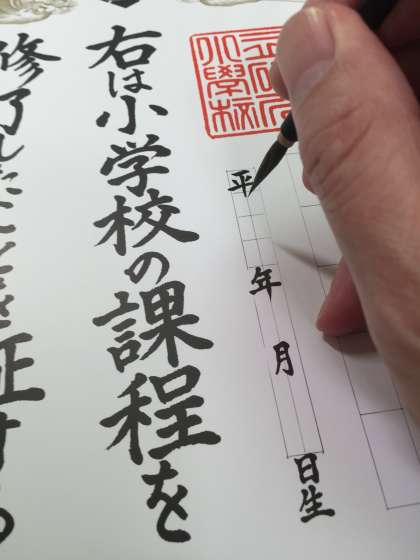 小學校
平 年 月 日生
右は小学校の課程を
修了したことを証する